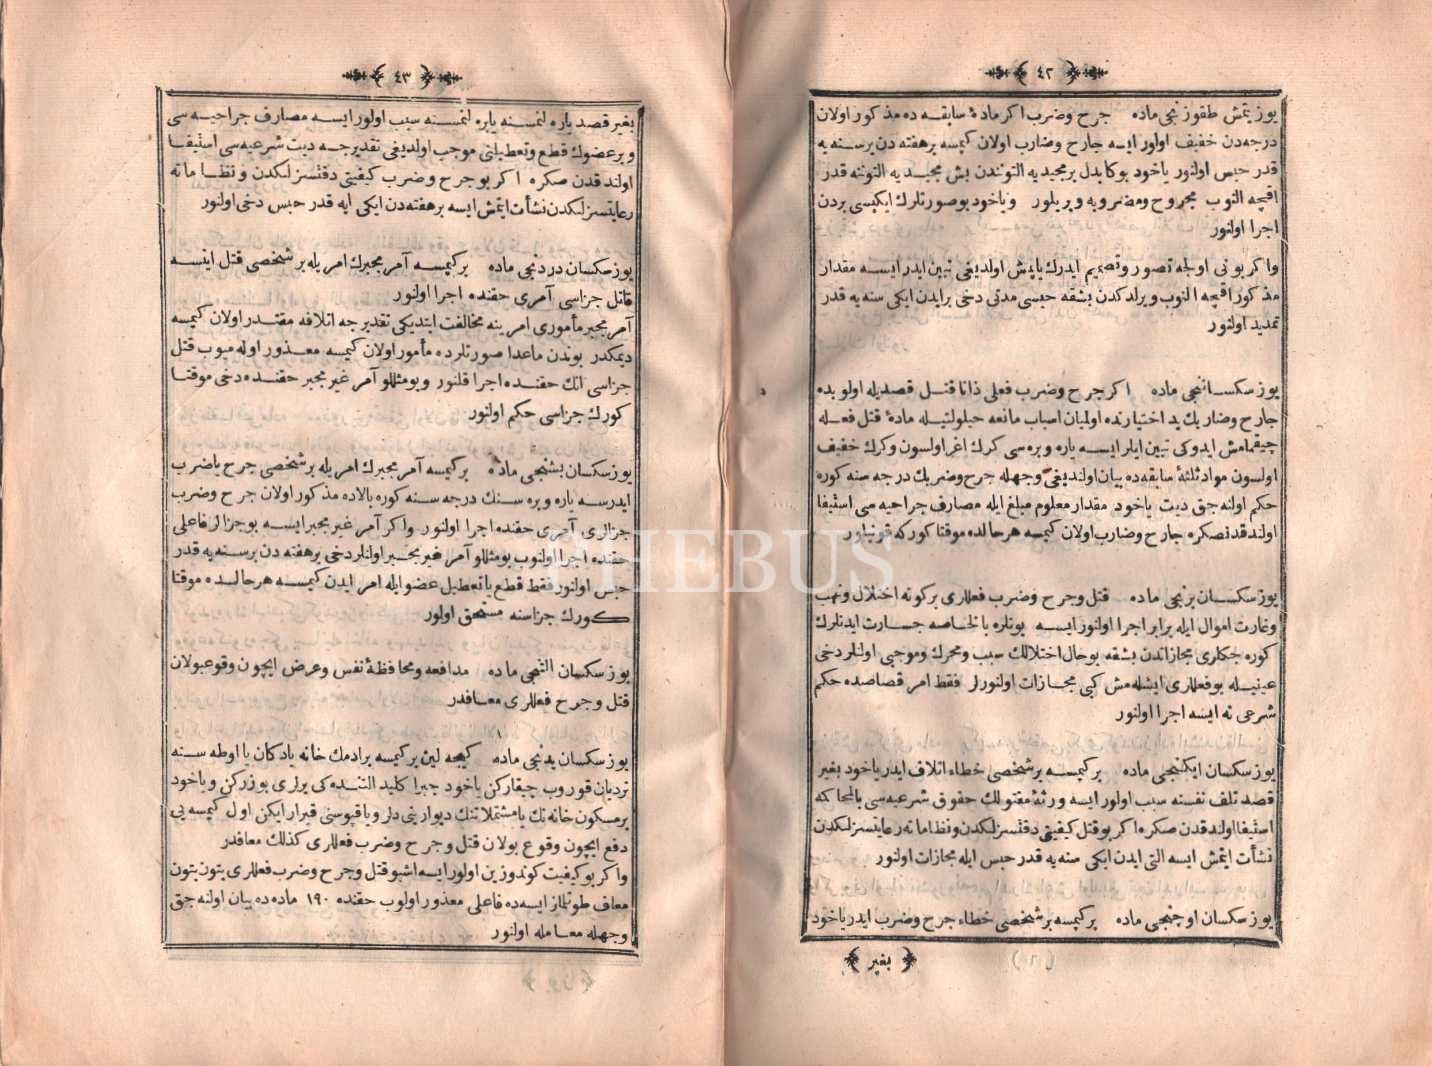 ﴿ ٤٢ ﴾
یوز یتمش طقوزنجی ماده جرح وضرب اکر مادۀ سابقه ده مذکور اولان
درجه دن خفیف اولور ایسه جارح وضارب اولان کیمسه بر هفته دن بر سنه یه
قدر حبس اولنور یاخود بوکا بدل بر مجیدیه التوندن بش مجیدیه التوننه قدر
اقچه النوب مجروح ومضروبه ویریلور ویاخود بو صورتلرك ایکیسی بردن
اجرا اولنور
واکر بونی اولجه تصور وتصمیم ایدرك یاپمش اولدیغی تبین ایدر ایسه مقدار
مذکور اقچه النوب ویرلدکدن بشقه حبسی مدتی دخی بر ایدن ایکی سنه یه قدر
تمدید اولنور
یوز سکسانجی ماده اکر جرح وضرب فعلی ذاتا قتل قصدیله اولوبده
جارح وضاربك ید اختیارنده اولمیان اسباب مانعه حیلولتیله مادۀ قتل فعله
چیقمامش ایدوکی تبین ایلر ایسه یاره وبره سی کرك اغر اولسون وکرك خفیف
اولسون مواد ثلثۀ سابقه ده بیان اولندیغی وجهله جرح وضربك درجه سنه کوره
حکم اولنه جق دیت یاخود مقدار معلوم مبلغ ایله مصارف جراحیه سی استیفا
اولندقدنصکره جارح وضارب اولان کیمسه هر حالده موقتا کورکه قونیلور
یوز سکسان برنجی ماده قتل وجرح وضرب فعللری برکونه اختلال ونهب
وغارت اموال ایله برابر اجرا اولنور ایسه بونلره بالخاصه جسارت ایدنلرك
کوره جکلری مجازاتدن بشقه بو حال اختلالك سبب ومحرك وموجبی اولنلر دخی
عینیله بو فعللری ایشله مش کبی مجازات اولنورلر فقط امر قصاصده حکم
شرعی نه ایسه اجرا اولنور
یوز سکسان ایکنجی ماده بر کیمسه بر شخصی خطاء اتلاف ایدر یاخود بغیر
قصد تلف نفسنه سبب اولور ایسه ورثۀ مقتولك حقوق شرعیه سی بالمحاکمه
استیفا اولندقدن صکره اکر بو قتل کیفیتی دقتسزلکدن ونظاماته رعایتسزلکدن
نشأت ایتمش ایسه التی ایدن ایکی سنه یه قدر حبس ایله مجازات اولنور
یوز سکسان اوچنجی ماده بر کیمسه بر شخصی خطاء جرح وضرب ایدر یاخود
﴿ بغیر ﴾
﴿ ٤٣ ﴾
بغیر قصد یاره لنمسنه یابره لنمسنه سبب اولور ایسه مصارف جراحیه سی
وبر عضوك قطع وتعطیلنی موجب اولدیغی تقدیرجه دیت شرعیه سی استیفا
اولندقدن صکره اکر بو جرح وضرب کیفیتی دقتسزلکدن ونظاماته
رعایتسزلکدن نشأت ایتمش ایسه بر هفته دن ایکی ایه قدر حبس دخی اولنور
یوز سکسان دردنجی ماده بر کیمسه آمر مجبرك امریله بر شخصی قتل ایتسه
قاتل جزاسی آمری حقنده اجرا اولنور
آمر مجبر مأموری امرینه مخالفت ایتدیکی تقدیرجه اتلافه مقتدر اولان کیمسه
دیمکدر بوندن ماعدا صورتلرده مأمور اولان کیمسه معذور اوله میوب قتل
جزاسی انك حقنده اجرا قلنور وبومثللو آمر غیر مجبر حقنده دخی موقتا
کورك جزاسی حکم اولنور
یوز سکسان بشنجی ماده بر کیمسه آمر مجبرك امریله بر شخصی جرح یاضرب
ایدرسه یاره وبره سنك درجه سنه کوره بالاده مذکور اولان جرح وضرب
جزالری آمری حقنده اجرا اولنور واکر آمر غیر مجبر ایسه بو جزالر فاعلی
حقنده اجرا اولنوب بومثللو آمر غیر مجبر اولنلر دخی بر هفته دن بر سنه یه قدر
حبس اولنور فقط قطع یا تعطیل عضو ایله امر ایدن کیمسه هر حالده موقتا
کورك جزاسنه مستحق اولور
یوز سکسان التنجی ماده مدافعه ومحافظۀ نفس وعرض ایچون وقوعبولان
قتل وجرح فعللری معافدر
یوز سکسان یدنجی ماده کیجه لین بر کیمسه بر ادمك خانه یادکان یا اوطه سنه
نردبان قوروب چیقارکن یاخود جبرا کلید التنده کی یرلری بوزرکن ویاخود
بر مسکون خانه نك یا مشتملاتنك دیوارینی دلر ویا قپوسنی قیرار ایکن اول کیمسه یی
دفع ایچون وقوعبولان قتل وجرح وضرب فعللری کذلك معافدر
واکر بو کیفیت کوندوزین اولور ایسه اشبو قتل وجرح وضرب فعللری بتون بتون
معاف طوتلماز ایسه ده فاعلی معذور اولوب حقنده ١٩٠ ماده ده بیان اولنه جق
وجهله معامله اولنور